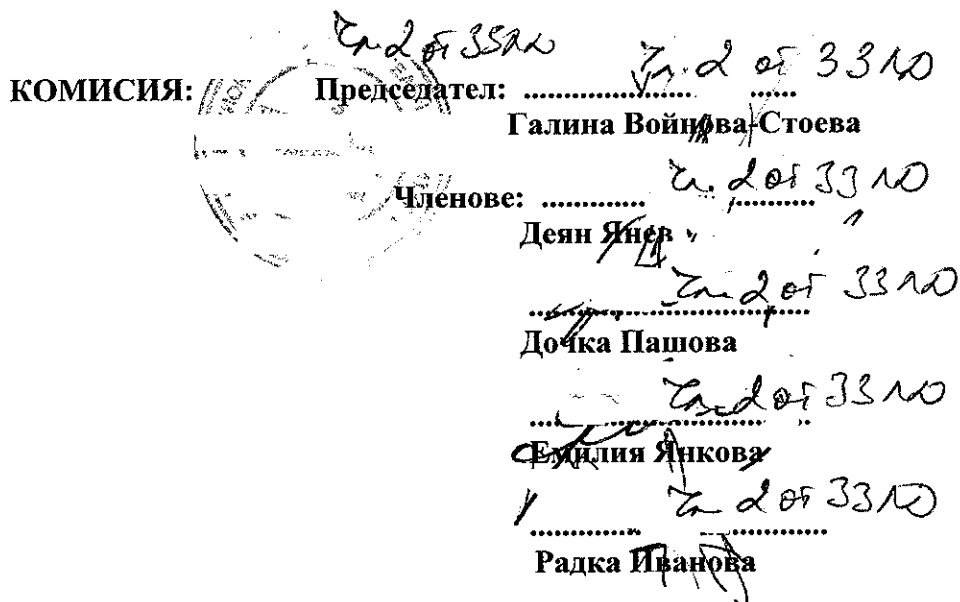 Чл. 2 от ЗЗЛД
КОМИСИЯ: Председател: ........................ Чл. 2 от ЗЗЛД
Галина Войнова-Стоева
Членове: ............. Чл. 2 от ЗЗЛД
Деян Янев
Чл. 2 от ЗЗЛД
Дочка Пашова
Чл. 2 от ЗЗЛД
Емилия Янкова
Чл. 2 от ЗЗЛД
Радка Иванова